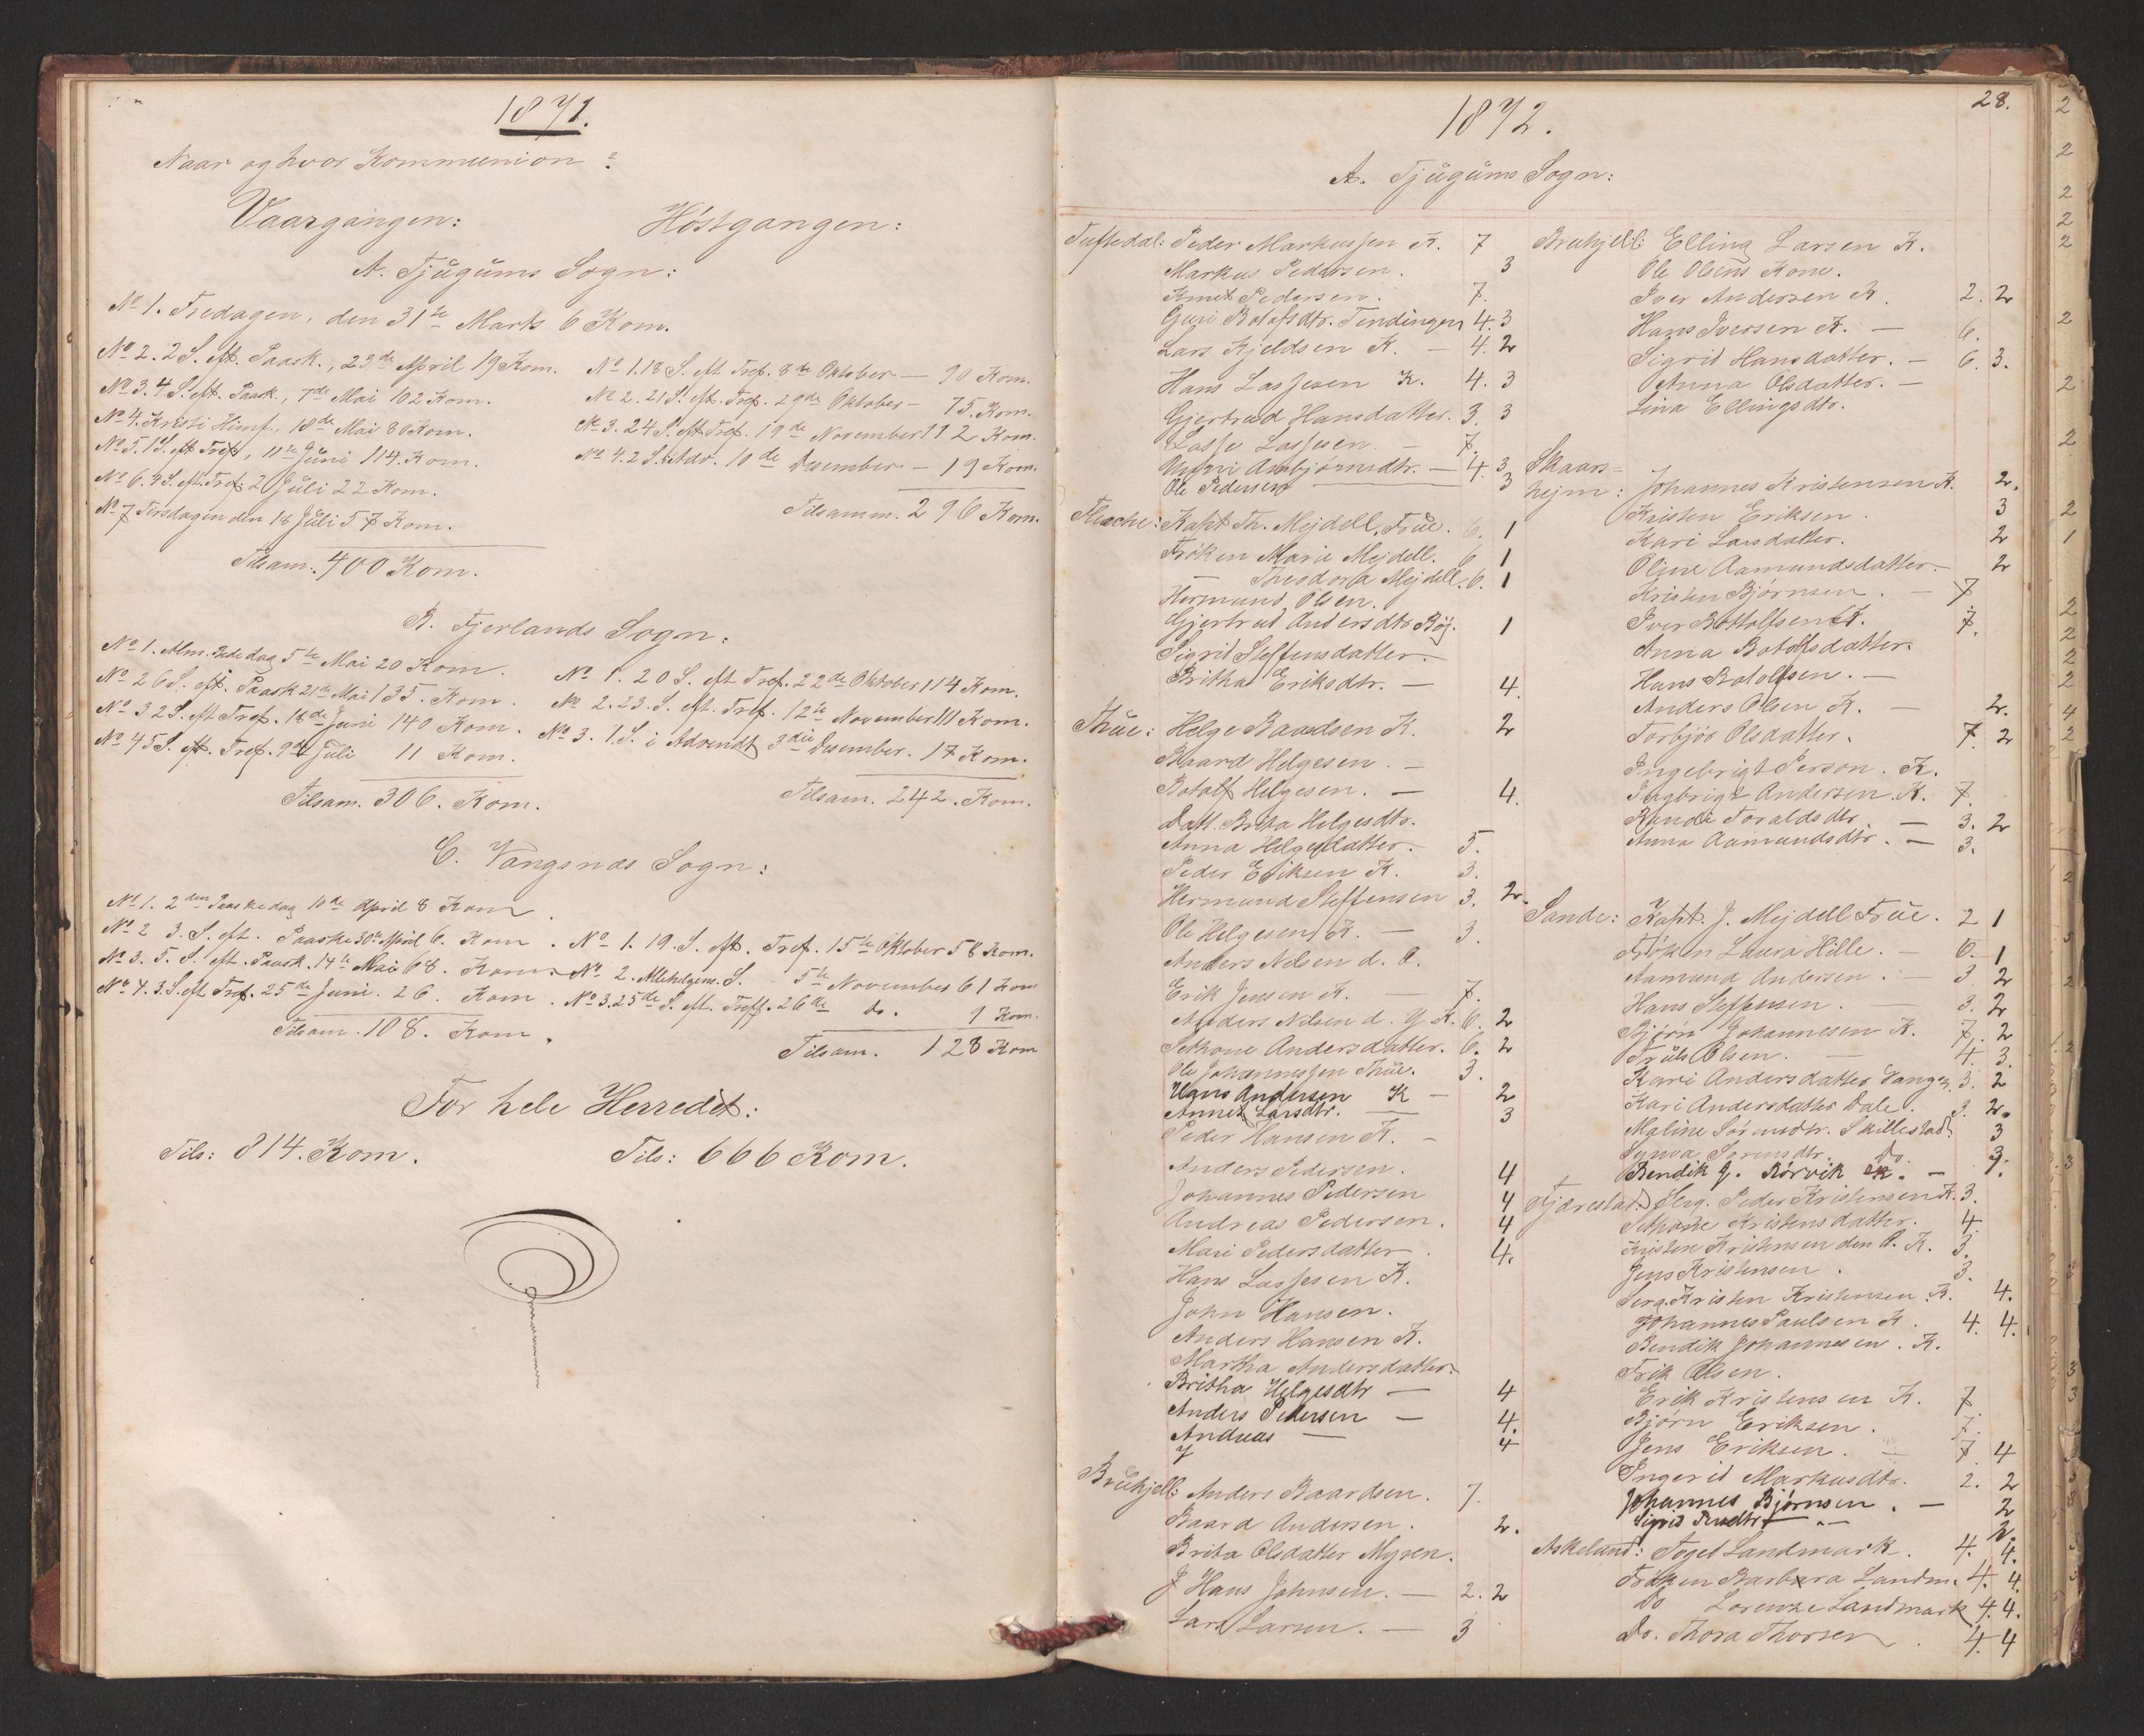 1871.
Naar og hvor Kommunion?
Vaargangen: Höstgangen:
A. Tjugums Sogn:
No 1. Fredagen, den 31te Marts 6 Kom.
No 2. 2 S. eft. Paask., 23de April 19 Kom.
No 3. 4 S. eft. Paask, 7de Mai 102 Kom.
No 4. Kristi Himf. 18de Mai 80 Kom.
No 5. 1 S. eft Tref, 11te Juni 114. Kom.
No 6. 4 S. eft. Tref. 2 Juli 22 Kom.
No 7 Tirsdagen den 18 Juli 57 Kom.
Tilsam. 400 Kom.
No 1. 18 S. eft Tref. 8de Oktober — 90 Kom.
No 2. 21 S. eft. Tref. 29de Oktober — 75. Kom.
No 3. 24 S. eft Tref. 19de November 112 Kom.
No 4. 2 S. i Adv. 10de Desember — 19 Kom.
Tilsamm. 296 Kom.
B. Fjerlands Sogn:
No 1. Alm. Bededag 5te Mai 20 Kom.
No 2 6 S. eft. Paask 21de Mai 135. Kom.
No 3 2 S. eft Tref. 18de Juni 140 Kom.
No 4 5 S. eft. Tref. 9de Juli 11 Kom.
Tilsam. 306. Kom.
No 1. 20 S. eft Tref. 22de Oktober 114 Kom.
No 2. 23. S. eft. Tref. 12te November 111 Kom.
No 3. 1. S. i Advendt 3die Desember. 17 Kom.
Tilsam. 242. Kom.
C. Vangsnæs Sogn:
No 1. 2den Paaskedag 10de April 8 Kom.
No 2 3. S. eft. Paaske 30te April 6. Kom.
No 3. 5. S. eft. Paask. 14de Mai 68. Kom.
No 4. 3. S. eft Tref. 25de Juni. 26. Kom.
Tilsam. 108. Kom.
No 1. 19. S. eft. Tref. 15te Oktober 58 Kom.
No 2. Allehelgens. S. 5te November 61 Kom
No 3. 25de S. eft. Treff. 26de do. 9 Kom.
Tilsam. 128 Kom
For hele Herredet:
Tils: 814. Kom. Tils: 666 Kom.
28.
1872.
A. Tjugums Sogn:
Tuftedal: Peder Markussen K. 7
Markus Pedersen. 3
Knut Pedersen. 7.
Guri Botolfsdtr. Tendingen 4. 3
Lars Kjeldsen K. — 4. 2
Hans Lassesen K. 4. 3
Gjertrud Hansdatter. 3. 3
Lasse Lassesen. — 7.
Ambjörnsdtr. — 4. 3
Ole Pedersen 3
Kapt Th. Mejdell, Frue. 6. 1
Fröken Marie Mejdell. 6 1
— Theodora Mejdell. 6. 1
Hermund Olsen.
Gjertrud Andersdtr Böj. 1
Sigrid Steffensdatter.
Britha Eriksdtr. — 4.
Thue: Helge Baardsen K. 2
Baard Helgesen. —
Botolf Helgesen. — 4.
Datt. Brita Helgesdtr.
Anna Helgesdatter. 5.
Peder Eriksen K. 3.
Hermund Steffensen 3. 2.
Ole Helgesen K. — 3.
Anders Nelsen d. Æ.
Erik Jensen K. — 7.
Anders Nelsen d. Y. K. 6. 2
Sethone Andersdatter. 6. 2
Ole Johannessen Thue. 3.
Hans Andersen K — 2
Annet Larsdtr. — 3
Peder Hansen K. —
Anders Pedersen. 4
Johannes Pedersen 4
Andreas Pedersen. 4
Mari Pedersdatter. 4.
Hans Lassesen K.
John Hansen.
Anders Hansen K.
Martha Andersdatter.
Britha Helgesdtr — 4
Anders Pedersen — 4.
Andreas — 4
Bruhjell: Anders Baardsen. 7.
Baard Andersen. 2.
Brita Olsdatter Myren.
Hans Johnsen. — 2. 2
Lars Larsen. — 3
Bruhjell: Elling Larsen K.
Ole Olsens Kone.
Iver Andersen K. 2. 2
Hans Iversen K. — 6.
Sigrid Hansdatter. — 6. 3.
Anna Olsdatter. —
Lina Ellingsdtr.
Skaars=
hejm: Johannes Kristensen K. 2.
Kristen Eriksen. 3
Kari Larsdatter. 2
Oline Aamundsdatter. 2
Kristen Björnsen. — 7
Iver Bottolfsen K. 7.
Anna Botolfsdatter.
Hans Botolfsen. —
Anders Olsen K. — 2.
Torbjör Olsdatter. 7. 2
Ingebrigt Person. K.
Ingbrigt Andersen. K. 7.
Randi Toraldsdtr. — 3. 2
Anna Aamundsdtr. — 3.
Sande: Kapt. J. Mejdell Frue. 2 1
Fröken Laura Hille. — 6. 1
Aamund Andersen. — 3 2
Hans Steffensen. — 3. 2
Björn Johannesen K. 7. 2
Truls Olsen. — 4. 3.
Kari Andersdatter Vange. 3. 2
Kari Andersdatter Dale. 3. 2.
Maline Sörensdtr. Skillestad. 3
Synva Sörensdtr. Do. 3.
Bendik J. Rörvik K. — 1.
Tjærestad. Serg. Peder Kristensen K. 3.
Sethone Kristensdatter. 4.
Kristen Kristensen den Æ. K. 3.
Jens Kristensen. 3.
Serg. Kristen Kristensen K. 4.
Johannes Paulsen K. 4. 4.
Bendik Johannesen. K.
Erik Olsen.
Erik Kristensen K. 7.
Björn Eriksen. 7.
Jens Eriksen. — 7. 4
Ingerid Markusdtr. 2. 2
Johannes Björnsen. — 2
Sigrid — 2.
Askelund: Foged Landmark. 4. 4.
Fröken Barbara Landm. 4. 4.
Do Lorenze Landmark 4. 4.
Do. Thora Thorsen. 4. 4